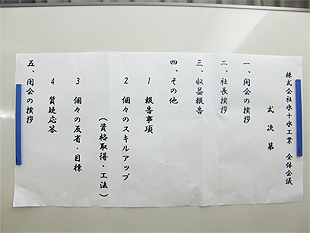 株式会社水十水工業 全体会議
式次第
一、開会の挨拶
二、社長挨拶
三、収益報告
四、その他
1 報告事項
2 個々のスキルアップ
(資格取得・工法)
3 個々の反省・目標
4 質疑応答
五、閉会の挨拶